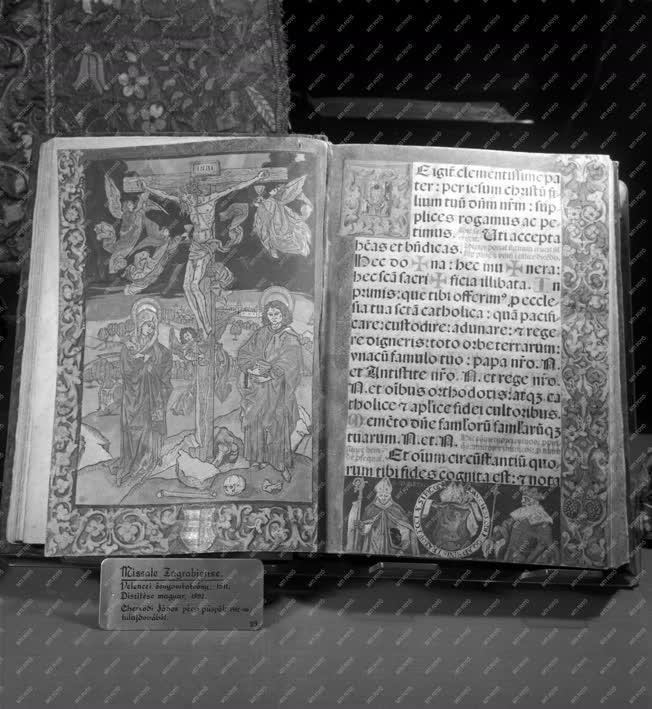 INRI
E igit᷑ clementissime pa
ter : per iesum christū fi
lium tuū dn̄m nr̄m : sup
plices rogamus ac pe
timus. Uti accepta
hēas et bn̄dicas.
Hec do ✠ na : hec mu ✠ nera :
hec scā sacri ✠ ficia illibata. In
primis : que tibi offerim⁹ ꝓ eccle
sia tua sctā catholica : quā pacifi
care : custodire : adunare : ⁊ rege
re digneris : toto orbe terrarum :
vnacū famulo tuo : papa nr̄o. N.
et Antistite nr̄o. N. et rege nr̄o.
N. et oībus orthodoxis : atqꝫ ca
tholice ⁊ apl̄ice fidei cultoribus.
Memēto dn̄e famlorū famlarūqꝫ
tuarum. N. et. N.
Et oīum circūstantiū quo-
rum tibi fides cognita est : ⁊ nota
Missale Zagrabiense.
Velencei ősnyomtatvány, 1511.
Díszítése magyar,
János pécsi püspök
tulajdonából.